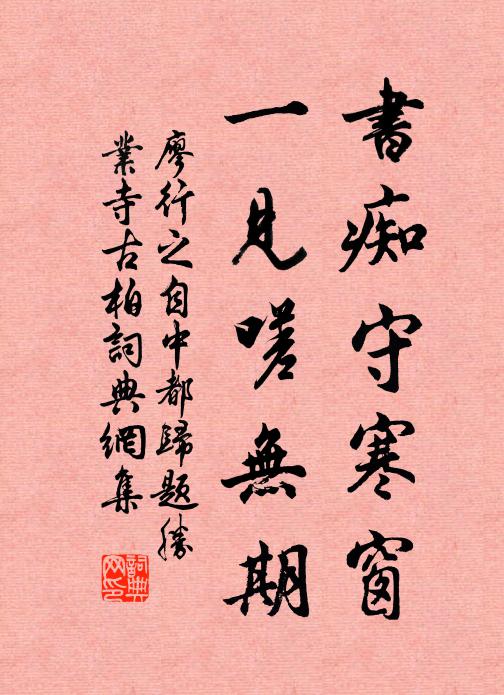 書痴守寒窗
一見嗟無期
廖行之自中都歸題勝
業寺古柏詞典網集
詞典网印